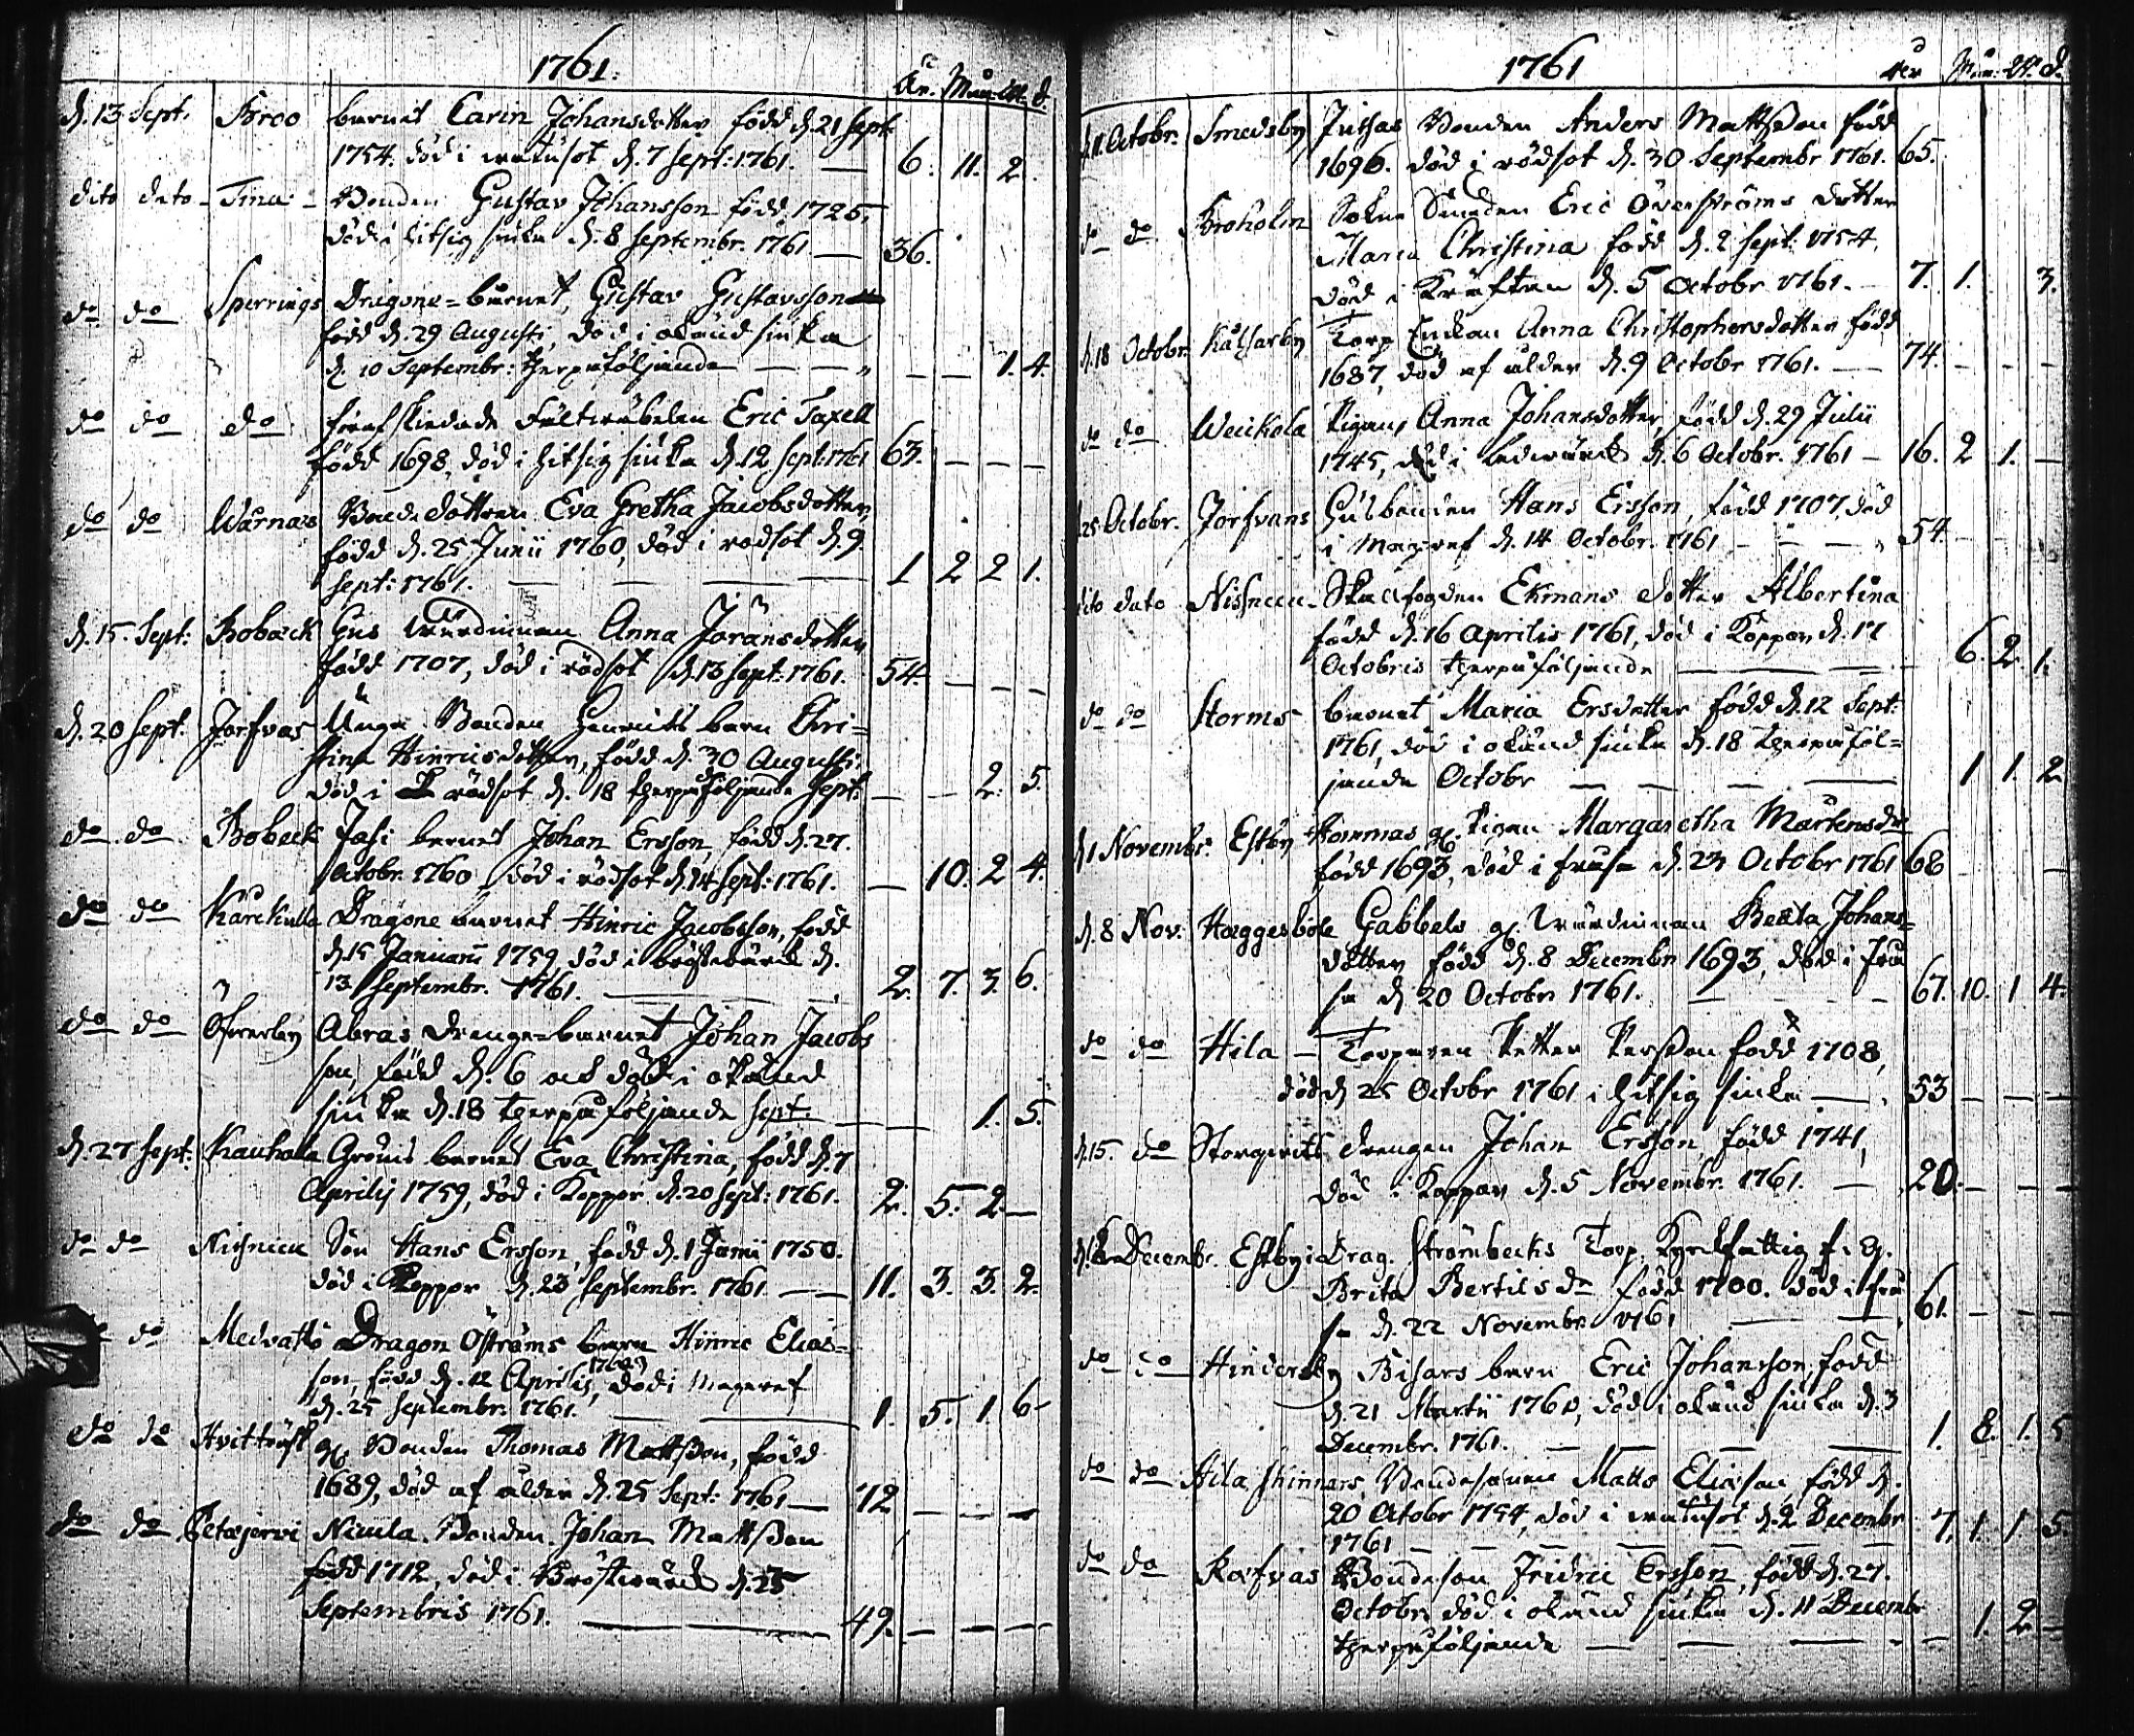 1761.
År. Mån. W. d.
d. 13 Sept. Broo barnet Carin Johansdotter född d. 21 Sept.
1754. död i d. 7 Sept: 1761. — 6. 11. 2.
dito dato – Tina – Bonden Gustav Johansson född 1725,
död i hitsig siuka d. 8 Septembr. 1761. — 36.
do do Sperrings Dragone-barnet, Gustav Gustavsson
född d. 29 Augusti, död i okänd siuka
d. 10 Septembr: therpåföljande — — 1. 4.
do do do förafskiedade Eric Taxell
född 1698, död i hitsig siuka d. 12 Sept: 1761 63. — — —
do do Wårnäs Bonde dottren Eva Gretha Jacobsdotter,
född d. 25 Junii 1760, död i rödsot d. 9.
Sept: 1761. — — — 1 2 2 1.
d. 15. Sept: Bobäck Gus Wärdinnan Anna Jöransdotter
född 1707, död i rödsot d. 13 Sept: 1761. 54. — — —
d. 20 Sept. Jorfvas Unga Bonden Henrics barn Chri-
stina Hinricsdotter, född d. 30 Augusti.
död i rödsot d. 18 therpåföljande Sept. — — 2. 5.
do do Bobeck Jofsi barnet Johan Ersson, född d. 27.
Octobr. 1760, död i rödsot d. 14 Sept: 1761. — 10. 2 4.
do do Karckulla Dragone barnet Hinric Jacobsson, född
d. 15 Januarii 1759 död i bröstwärck d.
13. Septembr. 1761. — 2. 7. 3. 6.
do do Öfverby Abras Drenge-barnet Johan Jacobs
son, född d. 6 och död i okänd
siuka d. 18 therpåföljande Sept. — — 1. 5.
d. 27 Sept: Kauhala Gröns barnet Eva Christina, född d. 7
Aprilis 1759, död i Koppor d. 20 Sept: 1761. 2. 5. 2. —
do do Nissnicu Son Hans Ersson, född d. 1 Junii 1750.
död i Koppor d. 23 Septembr. 1761 — — 11. 3. 3. 2.
do do Medvatts Dragon Öströms barn Hinric Elias-
son, född d. 12 Aprilis 1760, död i magref
d. 25 Septembr. 1761. — — 1. 5. 1 6
do do Hvitträsk gl. Bonden Thomas Mattsson, född
1689, död af ålder d. 25 Sept: 1761 — 72 — — —
do do Petäjervi Nicula Bonden Johan Mattsson
född 1712, död i Bröstwärck d. 25
Septembris 1761. — — 49. — — —
1761
Åer Mån: W. d.
d. 11. Octobr. Smedsby Juthas Bonden Anders Mattsson född
1696. död i rödsot d. 30 Septembr 1761. 65.
do do Broholm Sokne Smeden Eric Öfverströms dotter
Maria Christina född d. 2 Sept: 1754,
död i Kräftan d. 5 Octobr 1761. — 7. 1. 3.
d. 18 Octobr. Kålsarby Torp Enckan Anna Christophersdotter född
1687, död af ålder d. 9 Octobr 1761. — 74. — — —
do do Weickola Pigan Anna Johansdotter, född d. 29 Julii
1745, död i d. 6 Octobr. 1761 — 16. 2 1. —
d. 25 Octobr. Jorfvans Gusbonden Hans Ersson, född 1707, död
i Magref d. 14 Octobr. 1761 — — — 54.
dito dato Nissnicu – Skallfogden Ekmans dotter Albertina
född d. 16 Aprilis 1761, död i Koppor d. 17
Octobris therpåföljande — — 6. 2. 1.
do do Storms barnet Maria Ersdotter född d. 12 Sept:
1761, död i okänd siuka d. 18 therpåföl-
jande Octobr — — — 1 1. 2
d. 1 Novembr. Estby Hommas gl. Pigan Margaretha Mårtensdr
född 1693, död i frusa d. 23 Octobr 1761 68 —
d. 8 Nov: Haggesböle Gabbels gl. Wärdinnan Beata Johans-
dotter född d. 8 Decembr 1693, död i fru
sa d. 20 Octobr 1761. — — 67. 10. 1 4.
do do Hila – Torparen Petter Persson född 1708,
död d. 25 Octobr 1761 i hitsig siuka — 53 — — —
d. 15. do Storgirits drengen Johan Ersson, född 1741,
död i Koppor d. 5 Novembr. 1761. — 20. — — —
Decembr. Estby i Drag. Strömbecks Torp Kyrckfattig
Brita Bertils dr född 1700. död i fru
sa d. 22 Novembr 1761 — — 61. — — —
do do Hindersby Bisars barn Eric Johansson, född
d. 21 Martii 1760, död i okänd siuka d. 3
Decembr. 1761. — — — 1. 8. 1. 5
do do Hila Skinnars, Bondesonen Matts Eliæson född d.
20 Octobr 1754, död i d. 2 Decembr
1761 — — — 7. 1. 1 5
do do Rafvas Bondeson Fridric Ersson, född d. 27.
Octobr, död i okänd siuka d. 11 Decembr
therpåföljande — — — 1 2 —